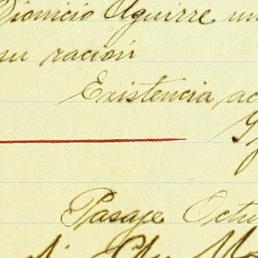 Dionicio Aguirre un
su ración
Existencia ac
Pasaje Octu